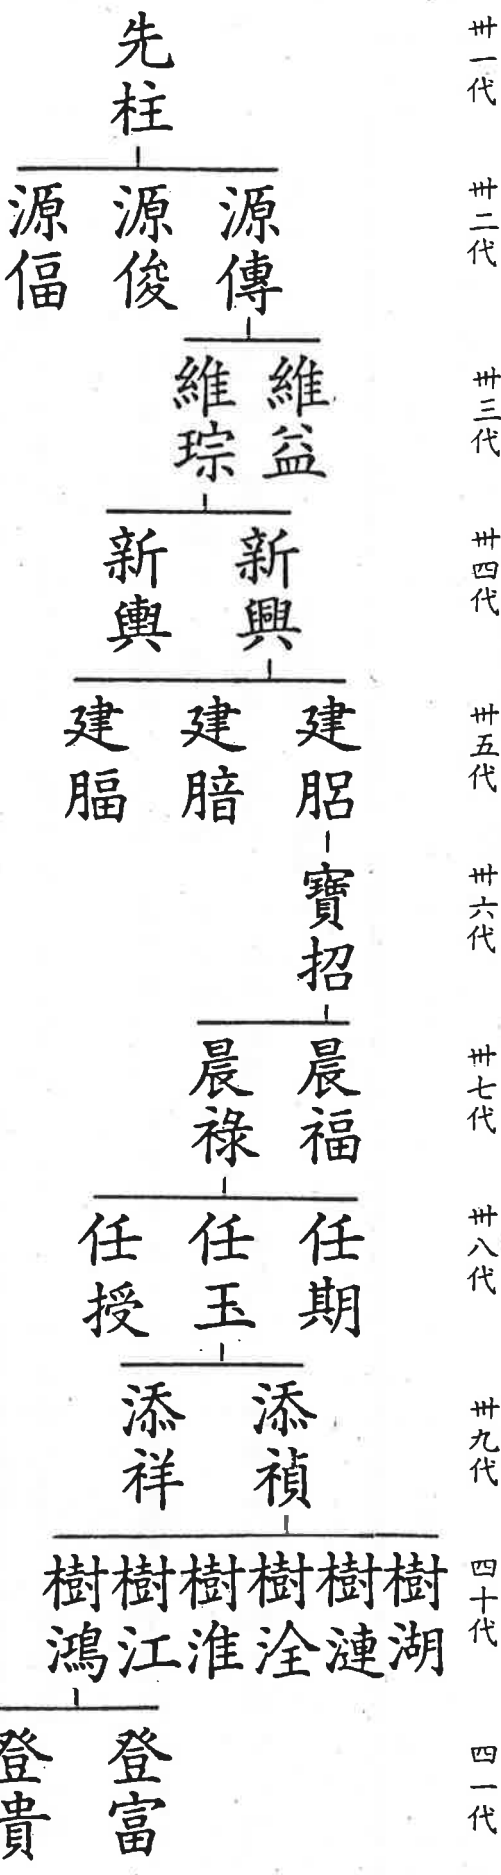 卅一代
先柱
卅二代
源傳
源俊
源偪
卅三代
維益
維琮
卅四代
新興
新輿
卅五代
建䏰
建腤
建腷
卅六代
寶招
卅七代
晨福
晨祿
卅八代
任期
任玉
任授
卅九代
添禎
添祥
四十代
樹湖
樹漣
樹洤
樹淮
樹江
樹鴻
四一代
登富
登貴